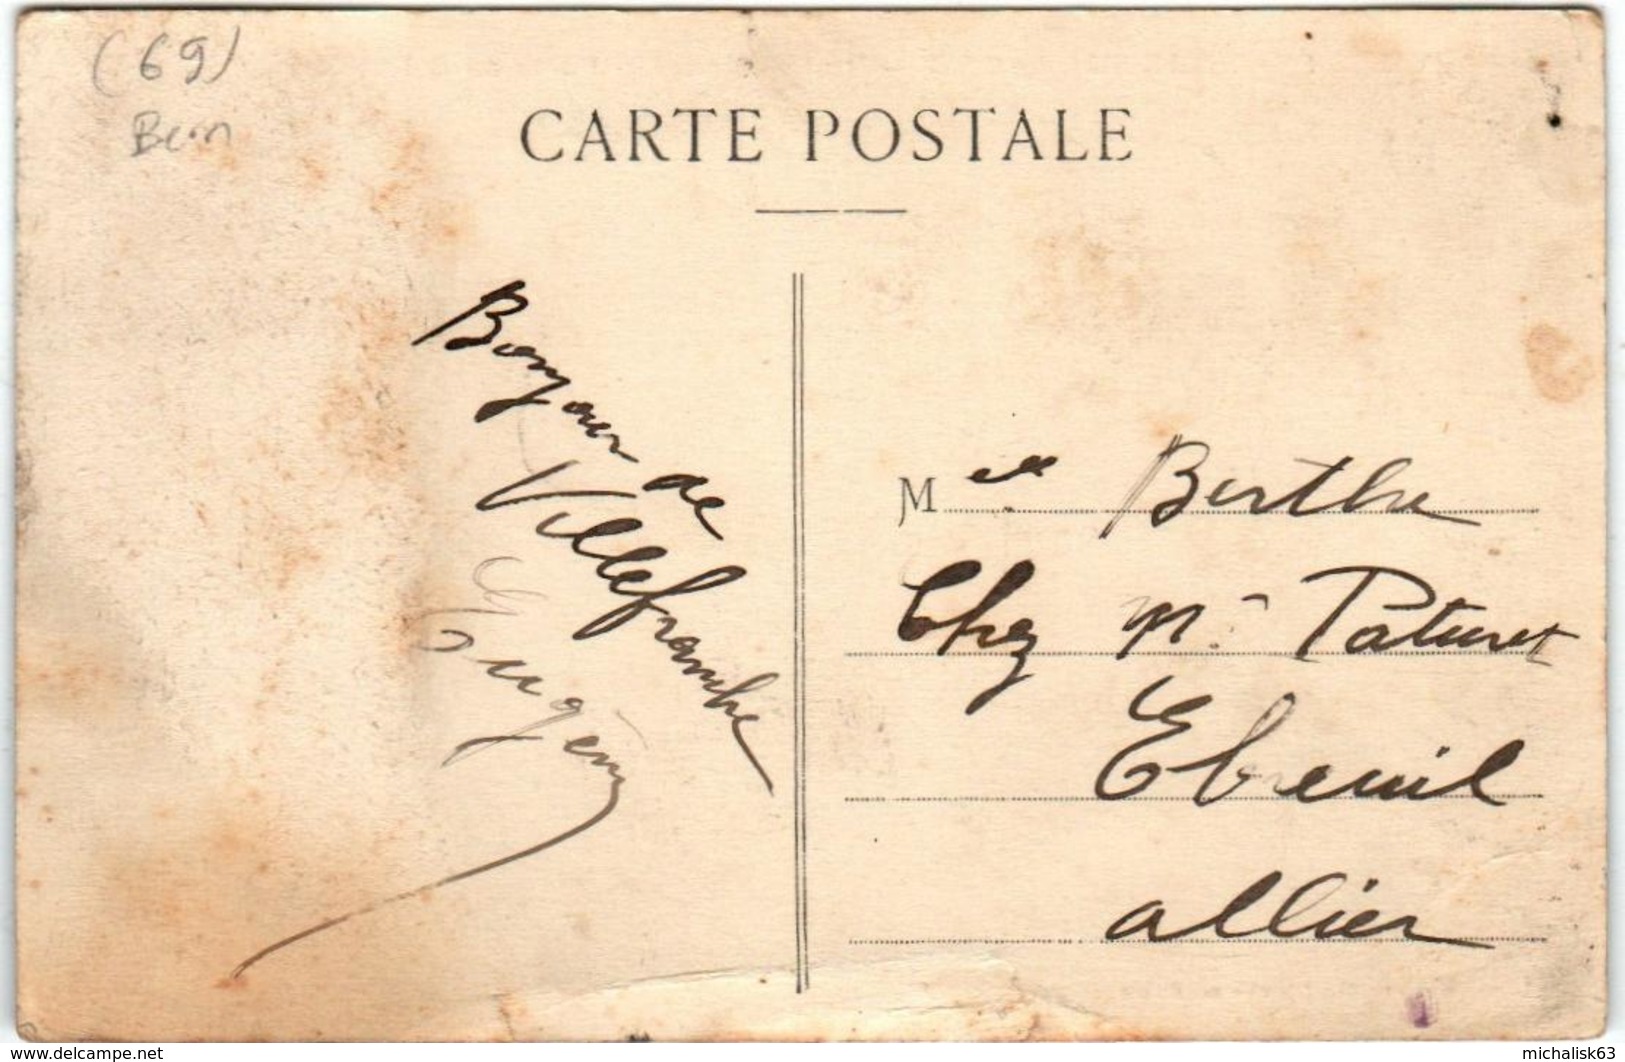 (69)
CARTE POSTALE
Bonjour de
Villefranche
Eugène
Melle Berthe
Chez Mr Paturet
Ebreuil
Allier
www.delcampe.net
michalisk63